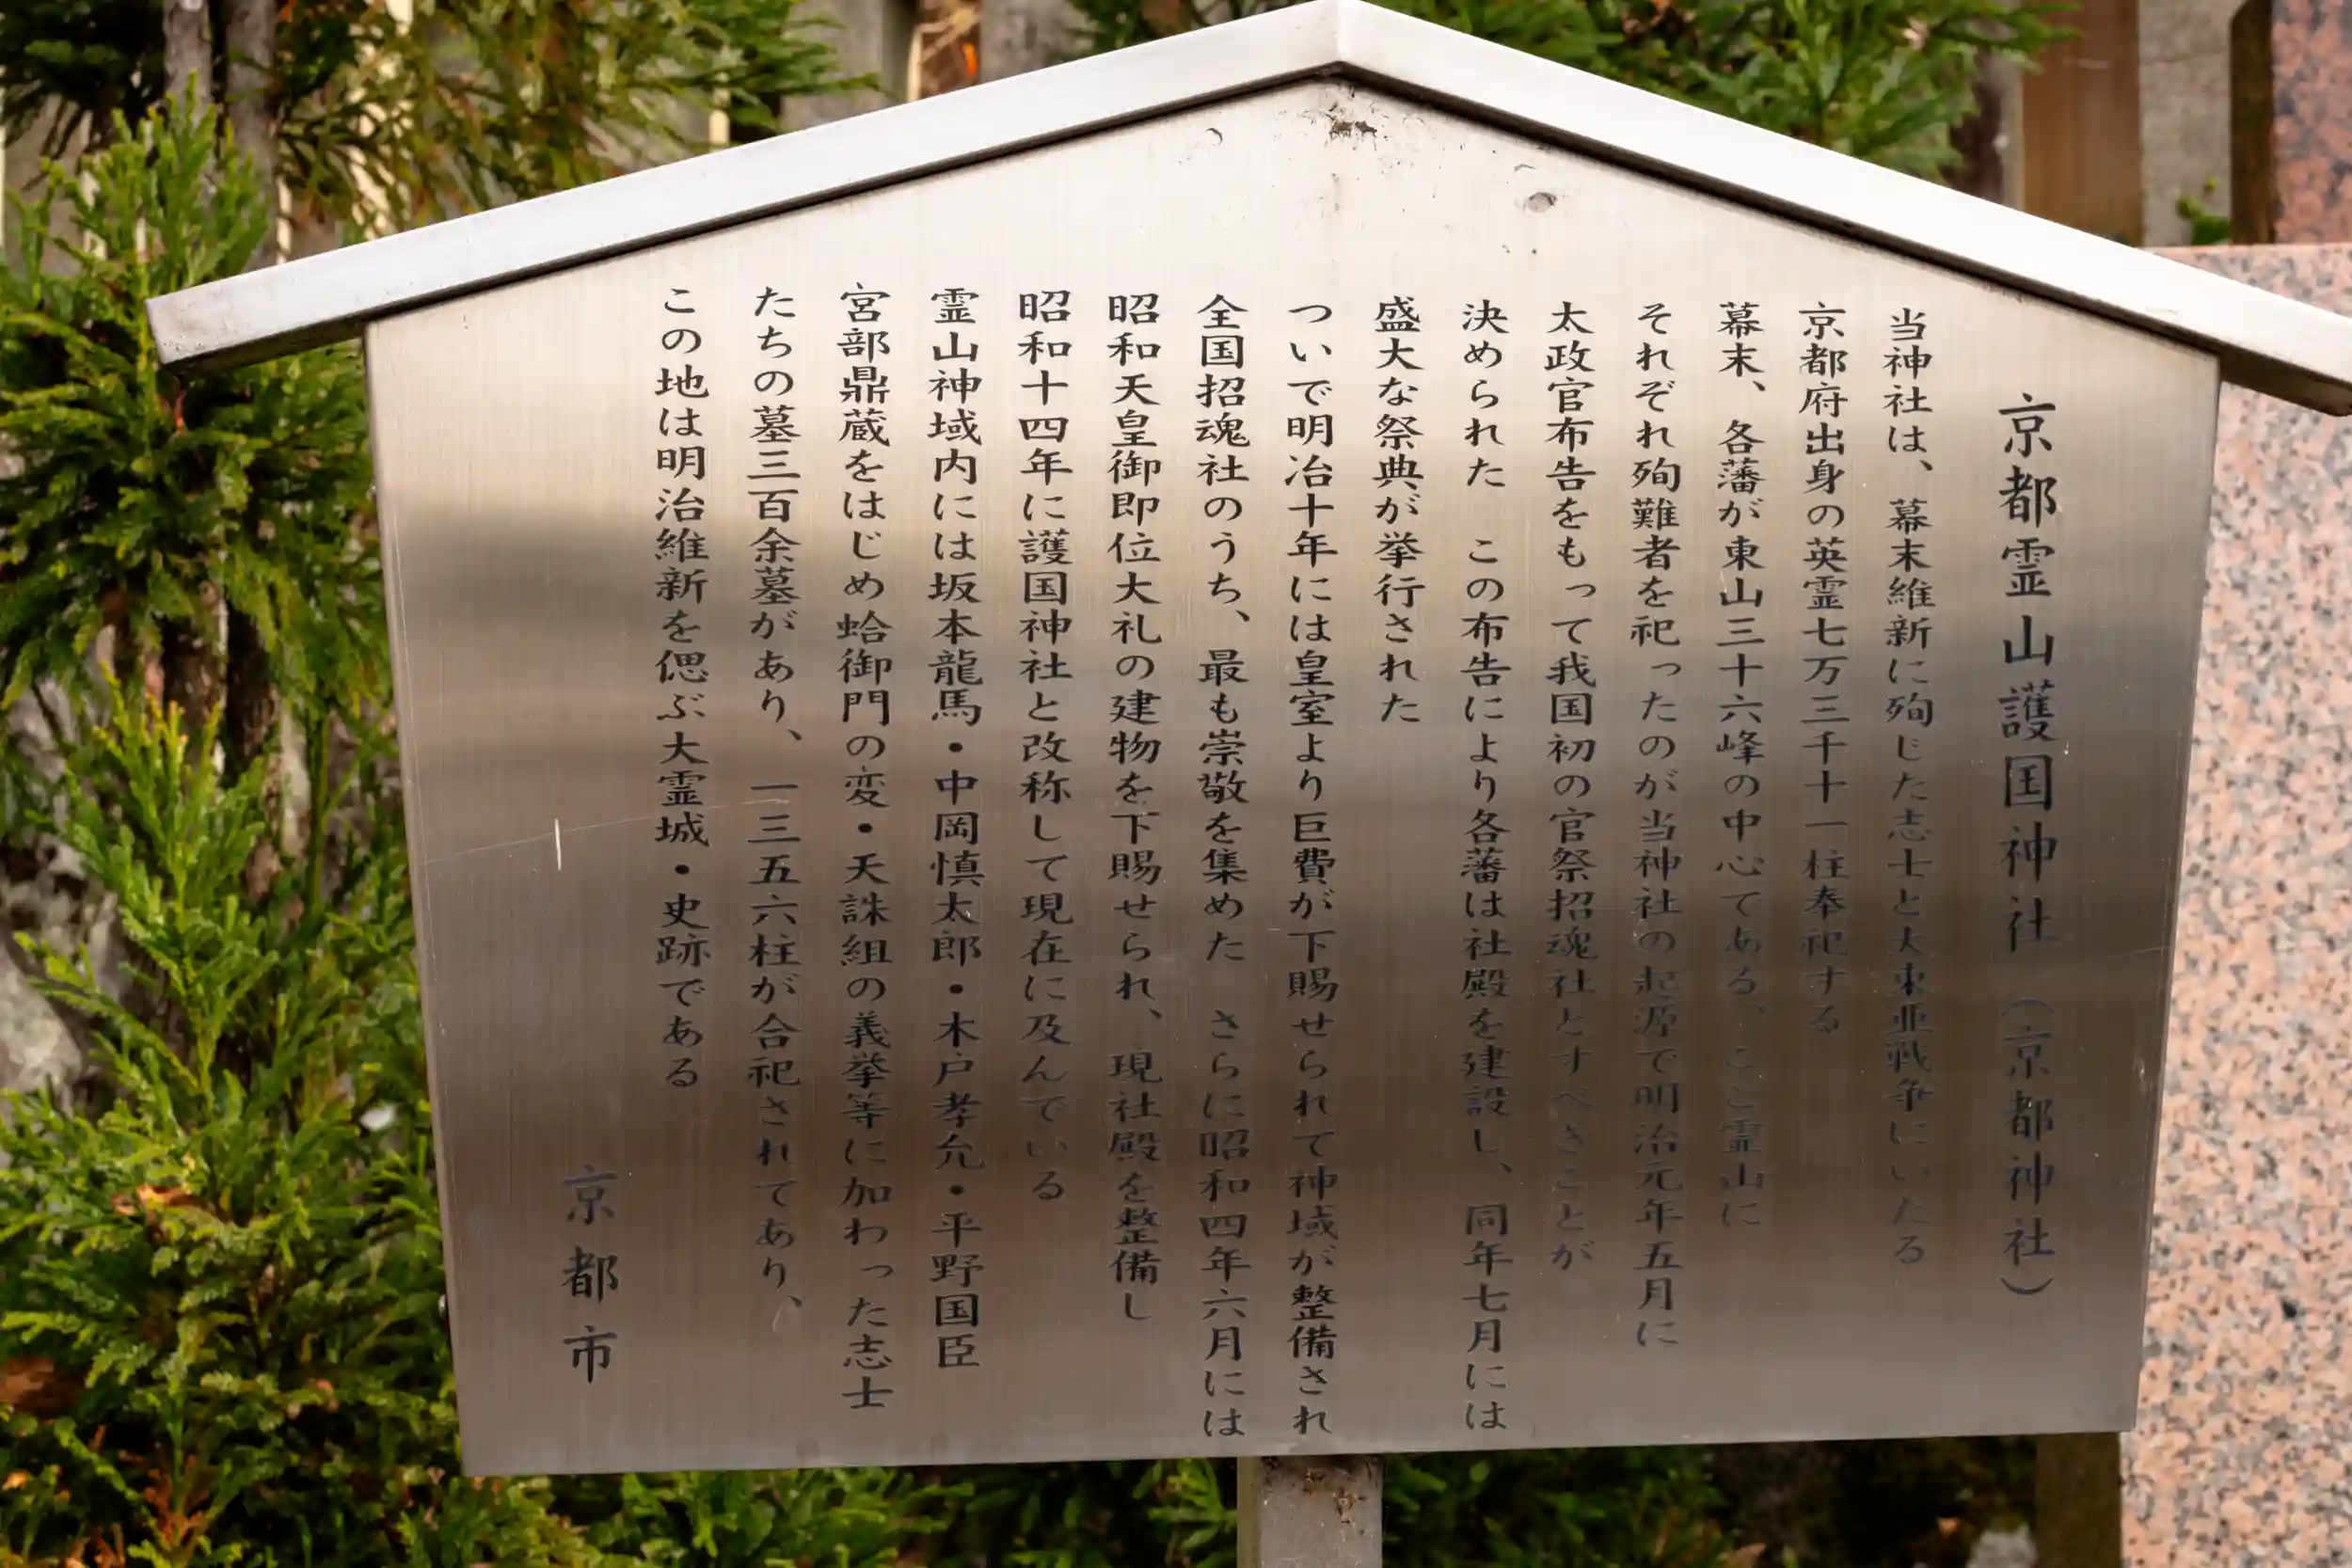 京都霊山護国神社（京都神社）
当神社は、幕末維新に殉じた志士と大東亜戦争にいたる
京都府出身の英霊七万三千十一柱奉祀する
幕末、各藩が東山三十六峰の中心てある、こと霊山に
それぞれ殉難者を祀ったのが当神社の起源で明治元年五月に
太政官布告をもって我国初の官祭招魂社とすべきことが
決められた　この布告により各藩は社殿を建設し、同年七月には
盛大な祭典が挙行された
ついで明治十年には皇室より巨費が下賜せられて神域が整備され
全国招魂社のうち、最も崇敬を集めた　さらに昭和四年六月には
昭和天皇御即位大礼の建物を下賜せられ、現社殿を整備し
昭和十四年に護国神社と改称して現在に及んでいる
霊山神域内には坂本龍馬・中岡慎太郎・木戸孝允・平野国臣
宮部鼎蔵をはじめ蛤御門の変・天誅組の義挙等に加わった志士
たちの墓三百余墓があり、一三五六柱が合祀されてあり、
この地は明治維新を偲ぶ大霊城・史跡である
京都市